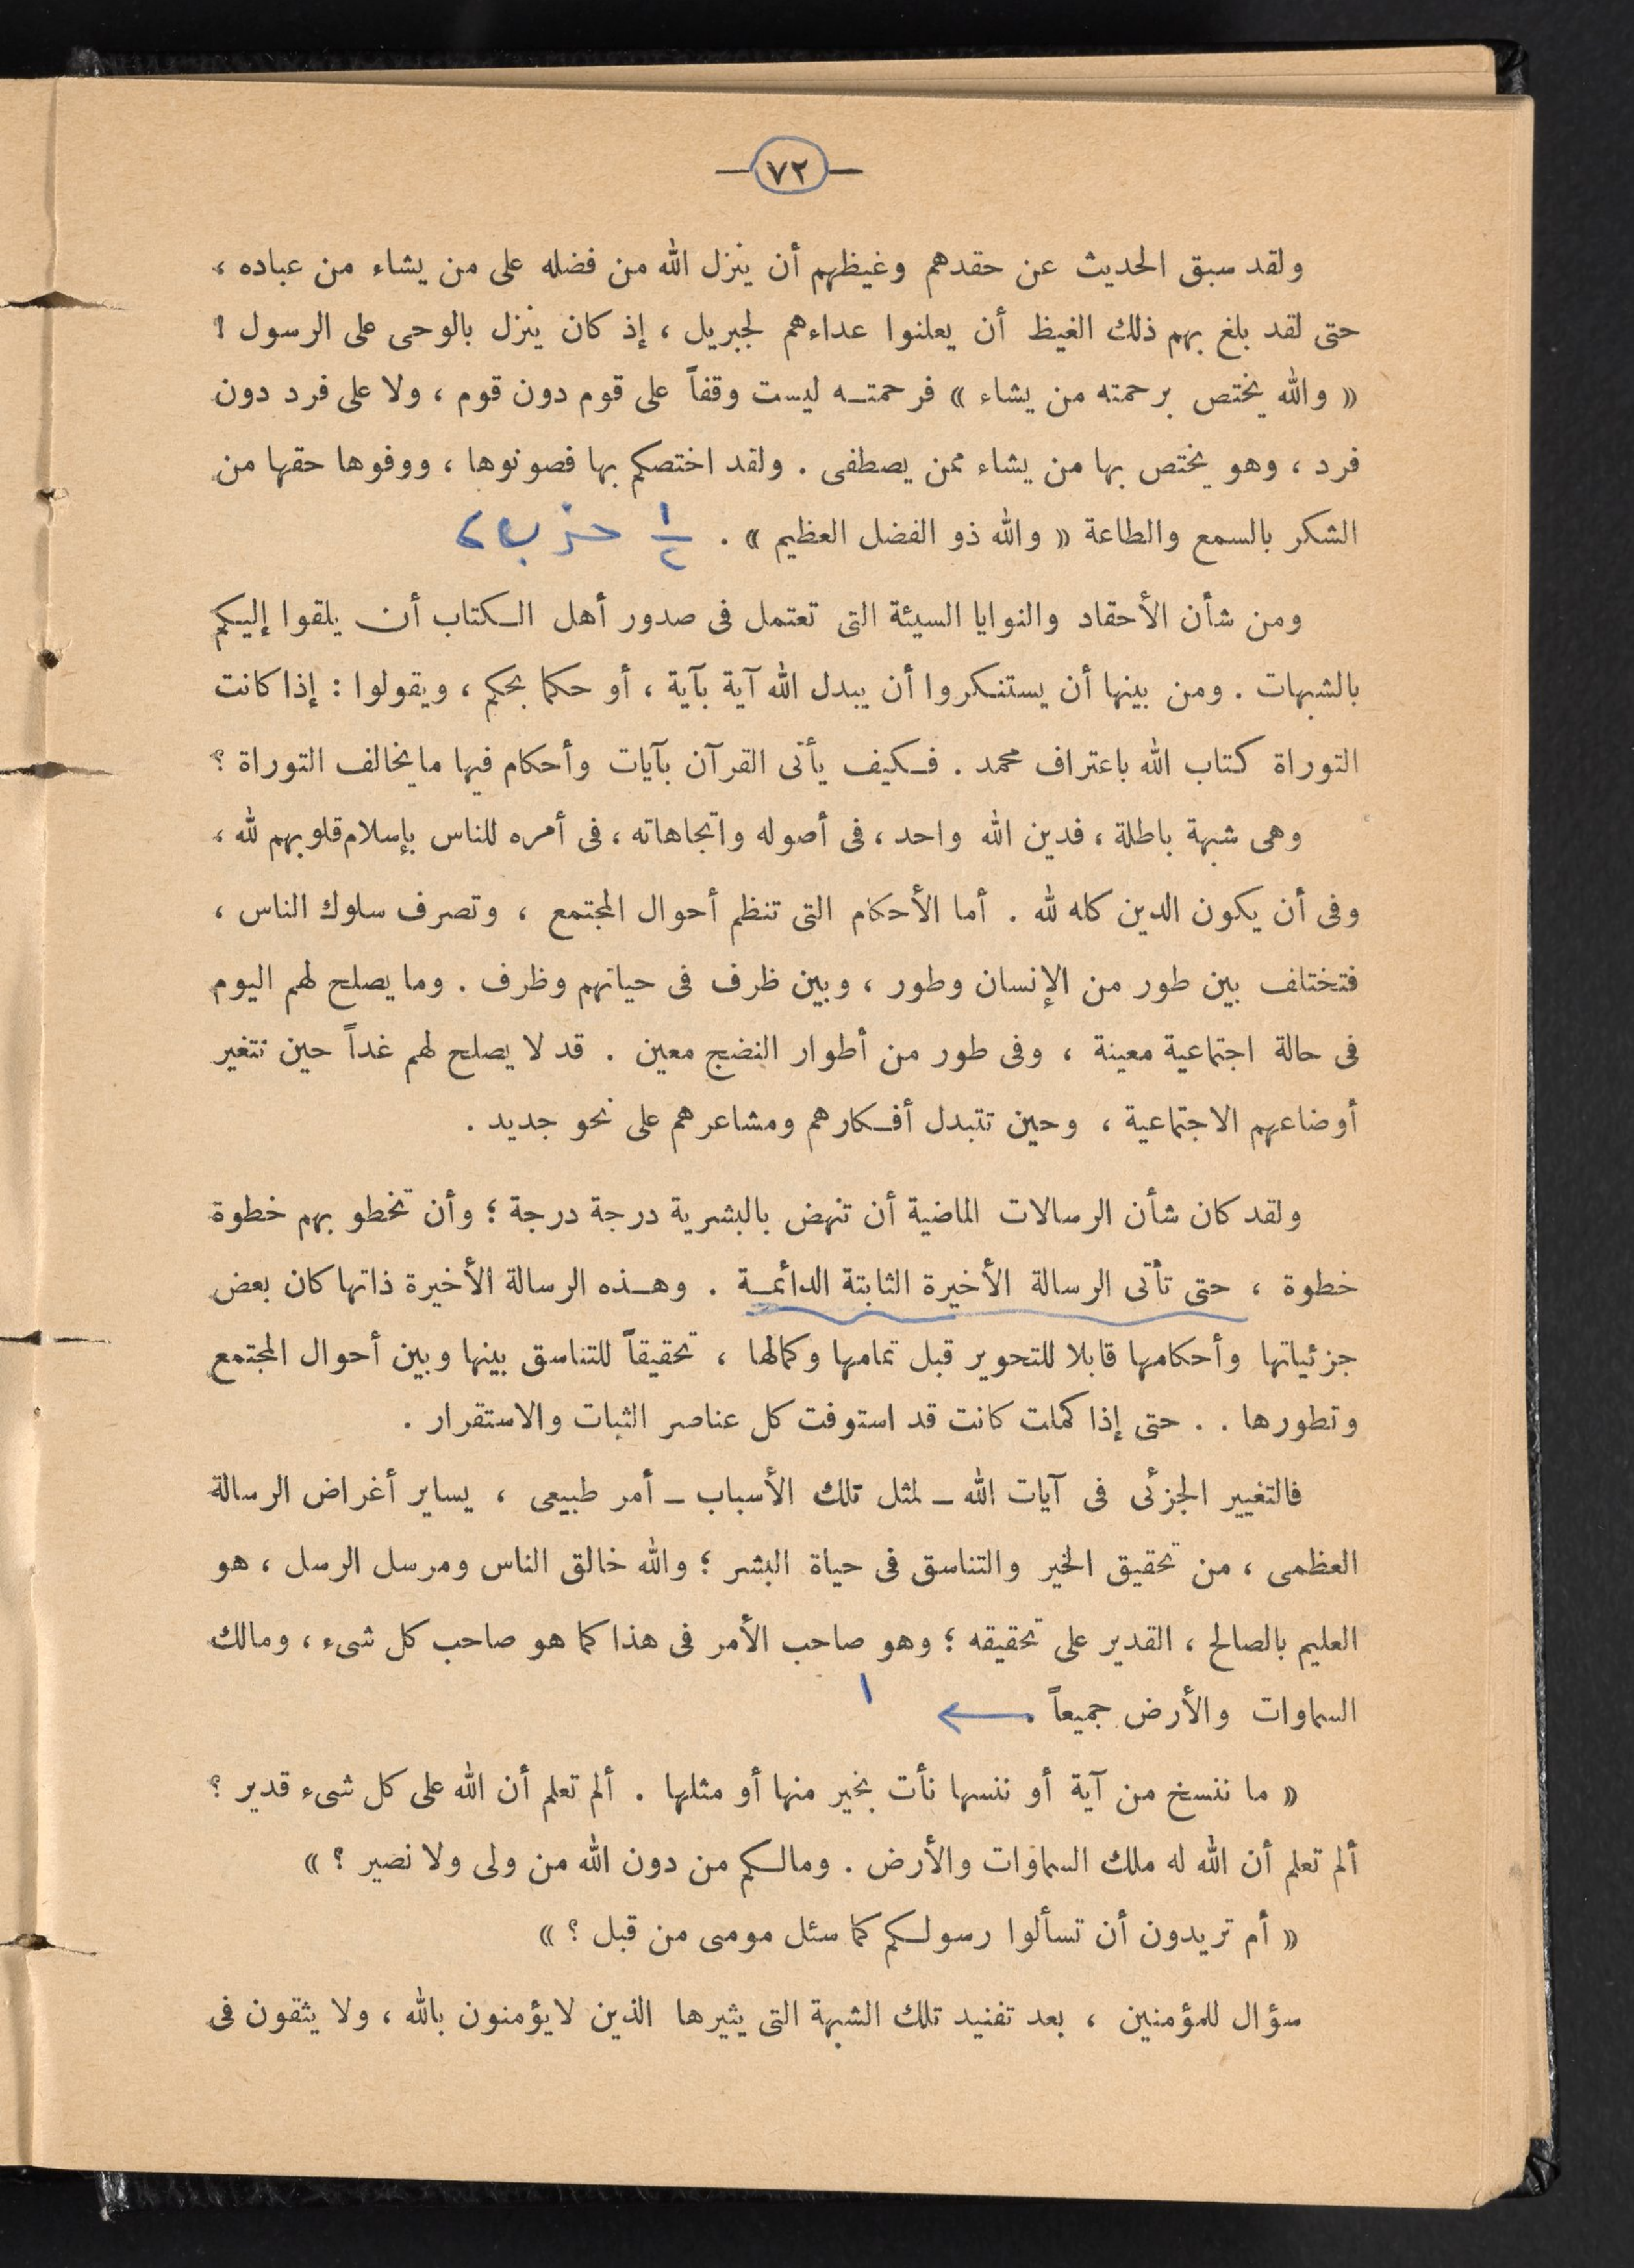 — ٧٢ —
ولقد سبق الحديث عن حقدهم وغيظهم أن ينزل الله من فضله على من يشاء من عباده ،
حتى لقد بلغ بهم ذلك الغيظ أن يعلنوا عداءهم لجبريل ، إذ كان ينزل بالوحى على الرسول !
« والله يختص برحمته من يشاء » فرحمتـه ليست وقفاً على قوم دون قوم ، ولا على فرد دون
فرد ، وهو يختص بها من يشاء ممن يصطفى . ولقد اختصكم بها فصونوها ، ووفوها حقها من
الشكر بالسمع والطاعة « والله ذو الفضل العظيم » . ١/٢ حزب ٢
ومن شأن الأحقاد والنوايا السيئة التى تعتمل فى صدور أهل الكتاب أن يلقوا إليكم
بالشبهات . ومن بينها أن يستنكروا أن يبدل الله آية بآية ، أو حكما بحكم ، ويقولوا : إذا كانت
التوراة كتاب الله باعتراف محمد . فكيف يأتى القرآن بآيات وأحكام فيها ما يخالف التوراة ؟
وهى شبهة باطلة ، فدين الله واحد ، فى أصوله واتجاهاته ، فى أمره للناس بإسلام قلوبهم لله ،
وفى أن يكون الدين كله لله . أما الأحكام التى تنظم أحوال المجتمع ، وتصرف سلوك الناس ،
فتختلف بين طور من الإنسان وطور ، وبين ظرف فى حياتهم وظرف . وما يصلح لهم اليوم
فى حالة اجتماعية معينة ، وفى طور من أطوار النضج معين . قد لا يصلح لهم غداً حين تتغير
أوضاعهم الاجتماعية ، وحين تتبدل أفكارهم ومشاعرهم على نحو جديد .
ولقد كان شأن الرسالات الماضية أن تنهض بالبشرية درجة درجة ؛ وأن تخطو بهم خطوة
خطوة ، حتى تأتى الرسالة الأخيرة الثابتة الدائمـة . وهـذه الرسالة الأخيرة ذاتها كان بعض
جزئياتها وأحكامها قابلا للتحوير قبل تمامها وكمالها ، تحقيقاً للتناسق بينها وبين أحوال المجتمع
وتطورها . . حتى إذا كملت كانت قد استوفت كل عناصر الثبات والاستقرار .
فالتغيير الجزئى فى آيات الله ــ لمثل تلك الأسباب ــ أمر طبيعى ، يساير أغراض الرسالة
العظمى ، من تحقيق الخير والتناسق فى حياة البشر ؛ والله خالق الناس ومرسل الرسل ، هو
العليم بالصالح ، القدير على تحقيقه ؛ وهو صاحب الأمر فى هذا كما هو صاحب كل شىء ، ومالك
السماوات والأرض جميعاً . ← ١
« ما ننسخ من آية أو ننسها نأت بخير منها أو مثلها . ألم تعلم أن الله على كل شىء قدير ؟
ألم تعلم أن الله له ملك السماوات والأرض . ومالكم من دون الله من ولى ولا نصير ؟ »
« أم تريدون أن تسألوا رسولكم كما سئل موسى من قبل ؟ »
سؤال للمؤمنين ، بعد تفنيد تلك الشبهة التى يثيرها الذين لا يؤمنون بالله ، ولا يثقون فى